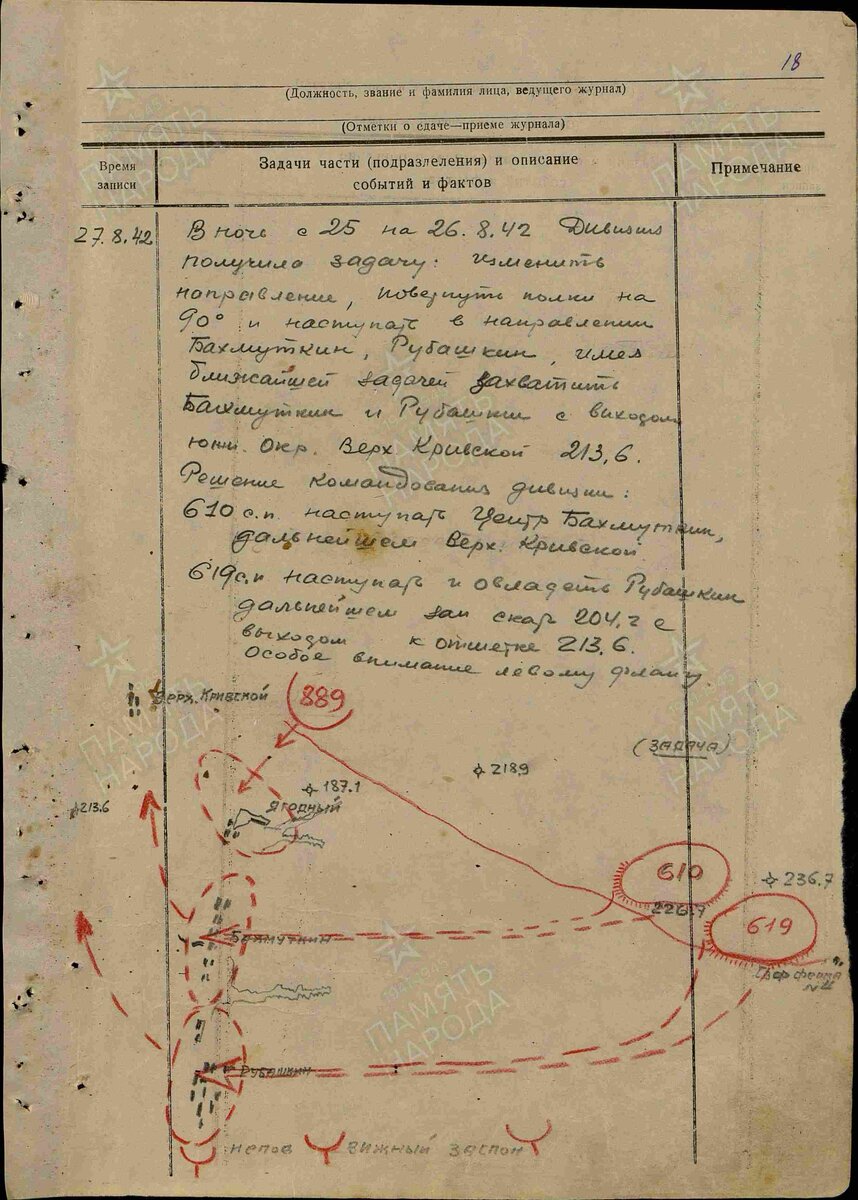 18
(Должность, звание и фамилия лица, ведущего журнал)
(Отметки о сдаче—приеме журнала)
Время записи
Задачи части (подразделения) и описание
событий и фактов
Примечание
27.8.42
В ночь с 25 на 26.8.42 Дивизия
получила задачу: изменить
направление, повернуть полки на
90° и наступать в направлении
Бахмуткин, Рубашкин, имея
ближайшей задачей захватить
Бахмуткин и Рубашкин с выходом
юж. окр. Верх Кривской 213,6.
Решение командования дивизии:
610 с.п. наступать Центр Бахмуткин,
дальнейшем Верх. Кривской
619 с.п наступать и овладеть Рубашкин
дальнейшем зап скат 204,2 с
выходом к отметке 213,6.
Особое внимание левому флангу.
Верх. Кривской
889
(ЗАДАЧА)
218.9
187.1
Ягодный
213.6
610
236.7
226.7
619
Бахмуткин
ферма
№4
Рубашкин
непод вижный заслон
ПАМЯТЬ
НАРОДА
ПАМЯТЬ
НАРОДА
ПАМЯТЬ
НАРОДА
ПАМЯТЬ
НАРОДА
ПАМЯТЬ
НАРОДА
ПАМЯТЬ
НАРОДА